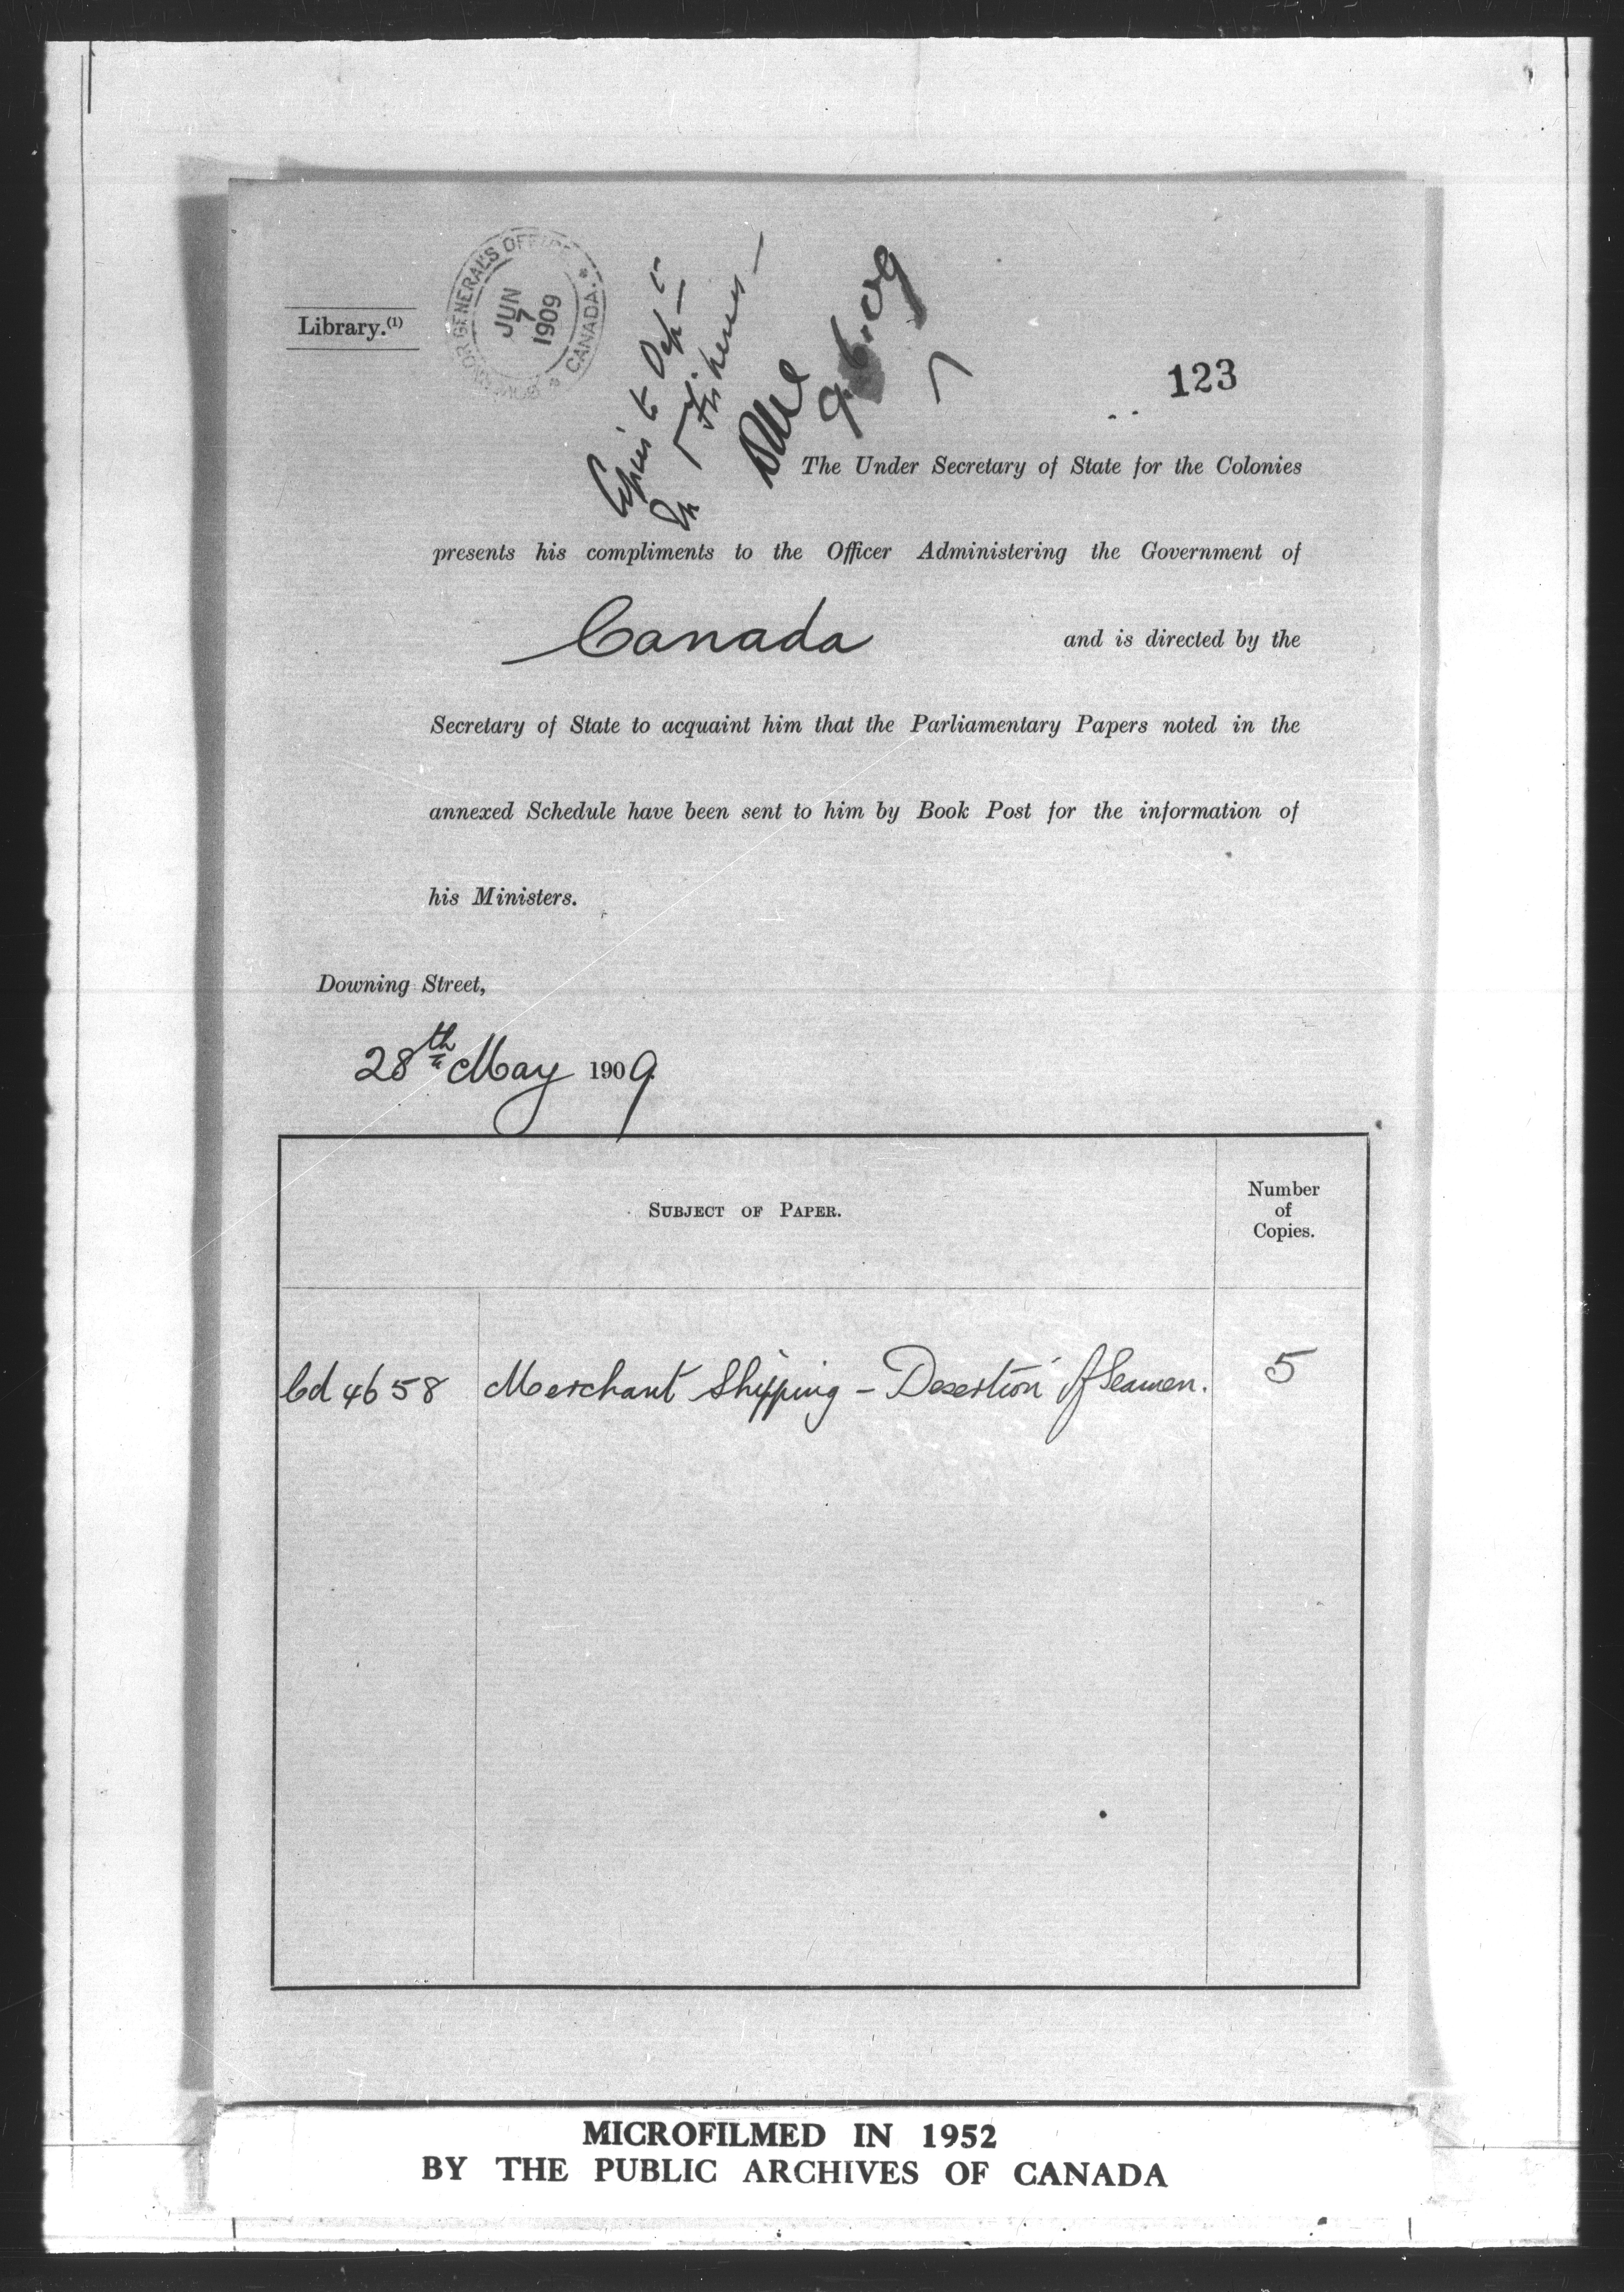 Library.(1)
GOVERNOR GENERAL'S OFFICE
* CANADA. *
JUN
7
1909
Copies to Dept
Fisheries —
9.6.09
123
The Under Secretary of State for the Colonies
presents his compliments to the Officer Administering the Government of
Canada and is directed by the
Secretary of State to acquaint him that the Parliamentary Papers noted in the
annexed Schedule have been sent to him by Book Post for the information of
his Ministers.
Downing Street,
28th May 1909.
SUBJECT OF PAPER.
Number
of
Copies.
Cd 4658 Merchant Shipping – Desertion of Seamen. 5
MICROFILMED IN 1952
BY THE PUBLIC ARCHIVES OF CANADA